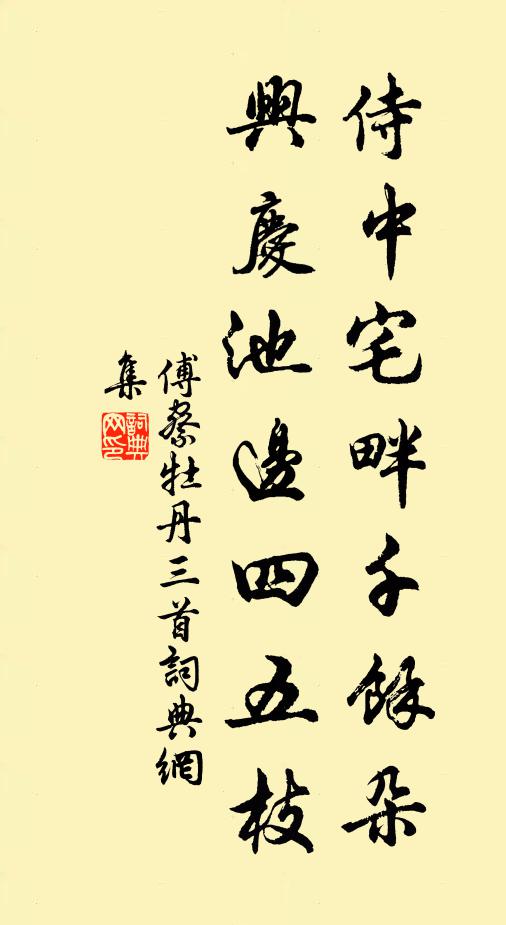 侍中宅畔千餘朵
興慶池邊四五枝
傅察牡丹三首詞典網
集
詞典网印